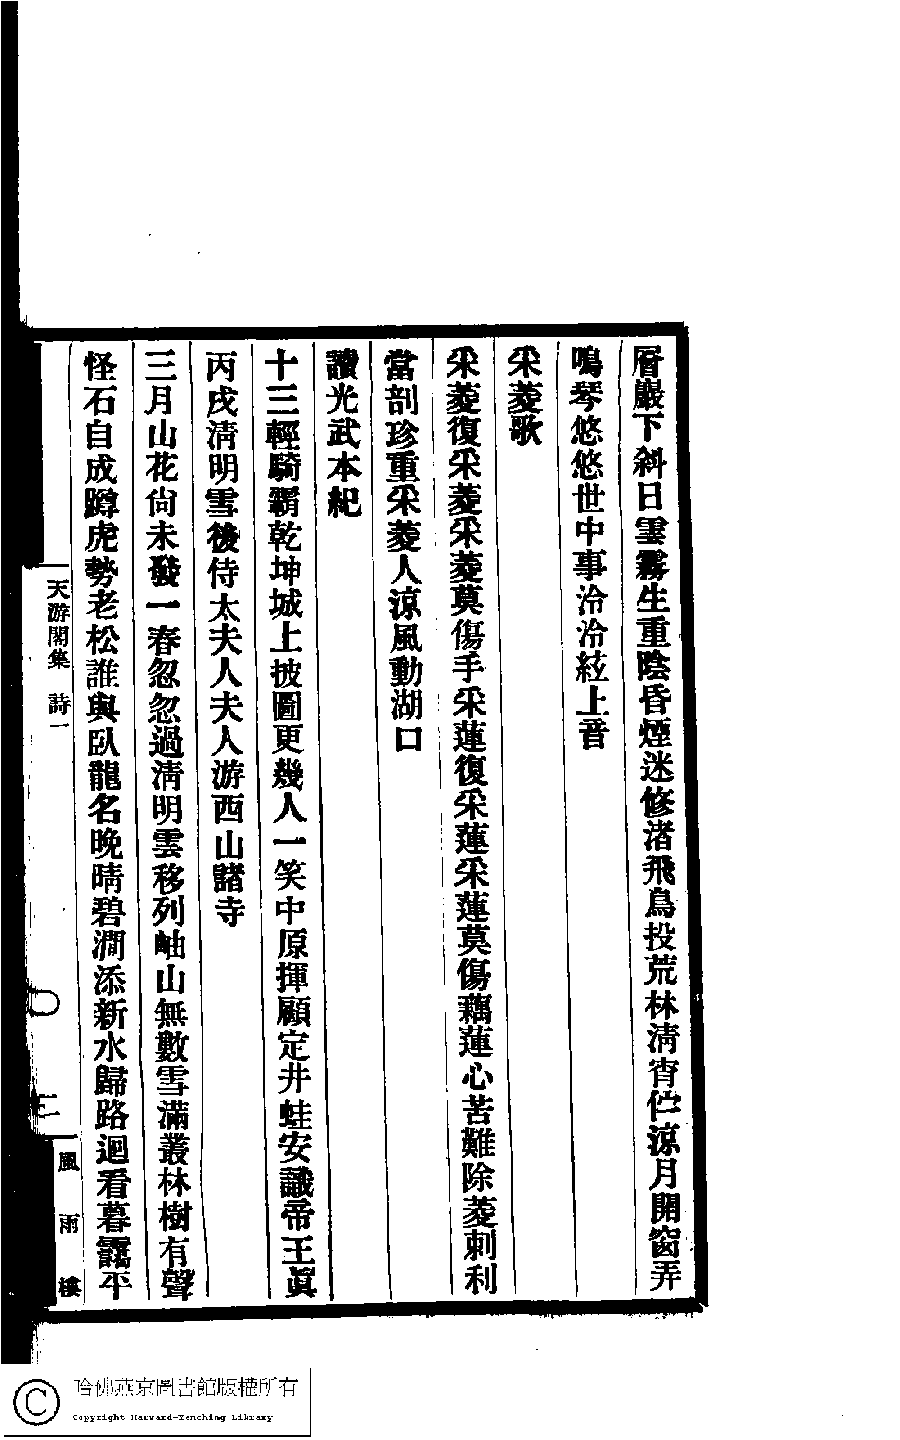 層巖下斜日雲霧生重陰昏煙迷修渚飛鳥投荒林淸宵伫涼月開窗弄
鳴琴悠悠世中事泠泠絃上音
采菱歌
采菱復采菱采菱莫傷手采蓮復采蓮采蓮莫傷藕蓮心苦難除菱刺利
當剖珍重采菱人涼風動湖口
讀光武本紀
十三輕騎霸乾坤城上披圖更幾人一笑中原揮顧定井蛙安識帝王眞
丙戌淸明雪後侍太夫人夫人游西山諸寺
三月山花尙未發一春忽忽過淸明雲移列岫山無數雪滿叢林樹有聲
怪石自成蹲虎勢老松誰與臥龍名晚晴碧澗添新水歸路迴看暮靄平
天游閣集 詩一
三
風雨樓
哈佛燕京圖書館版權所有
Copyright Harvard-Yenching Library